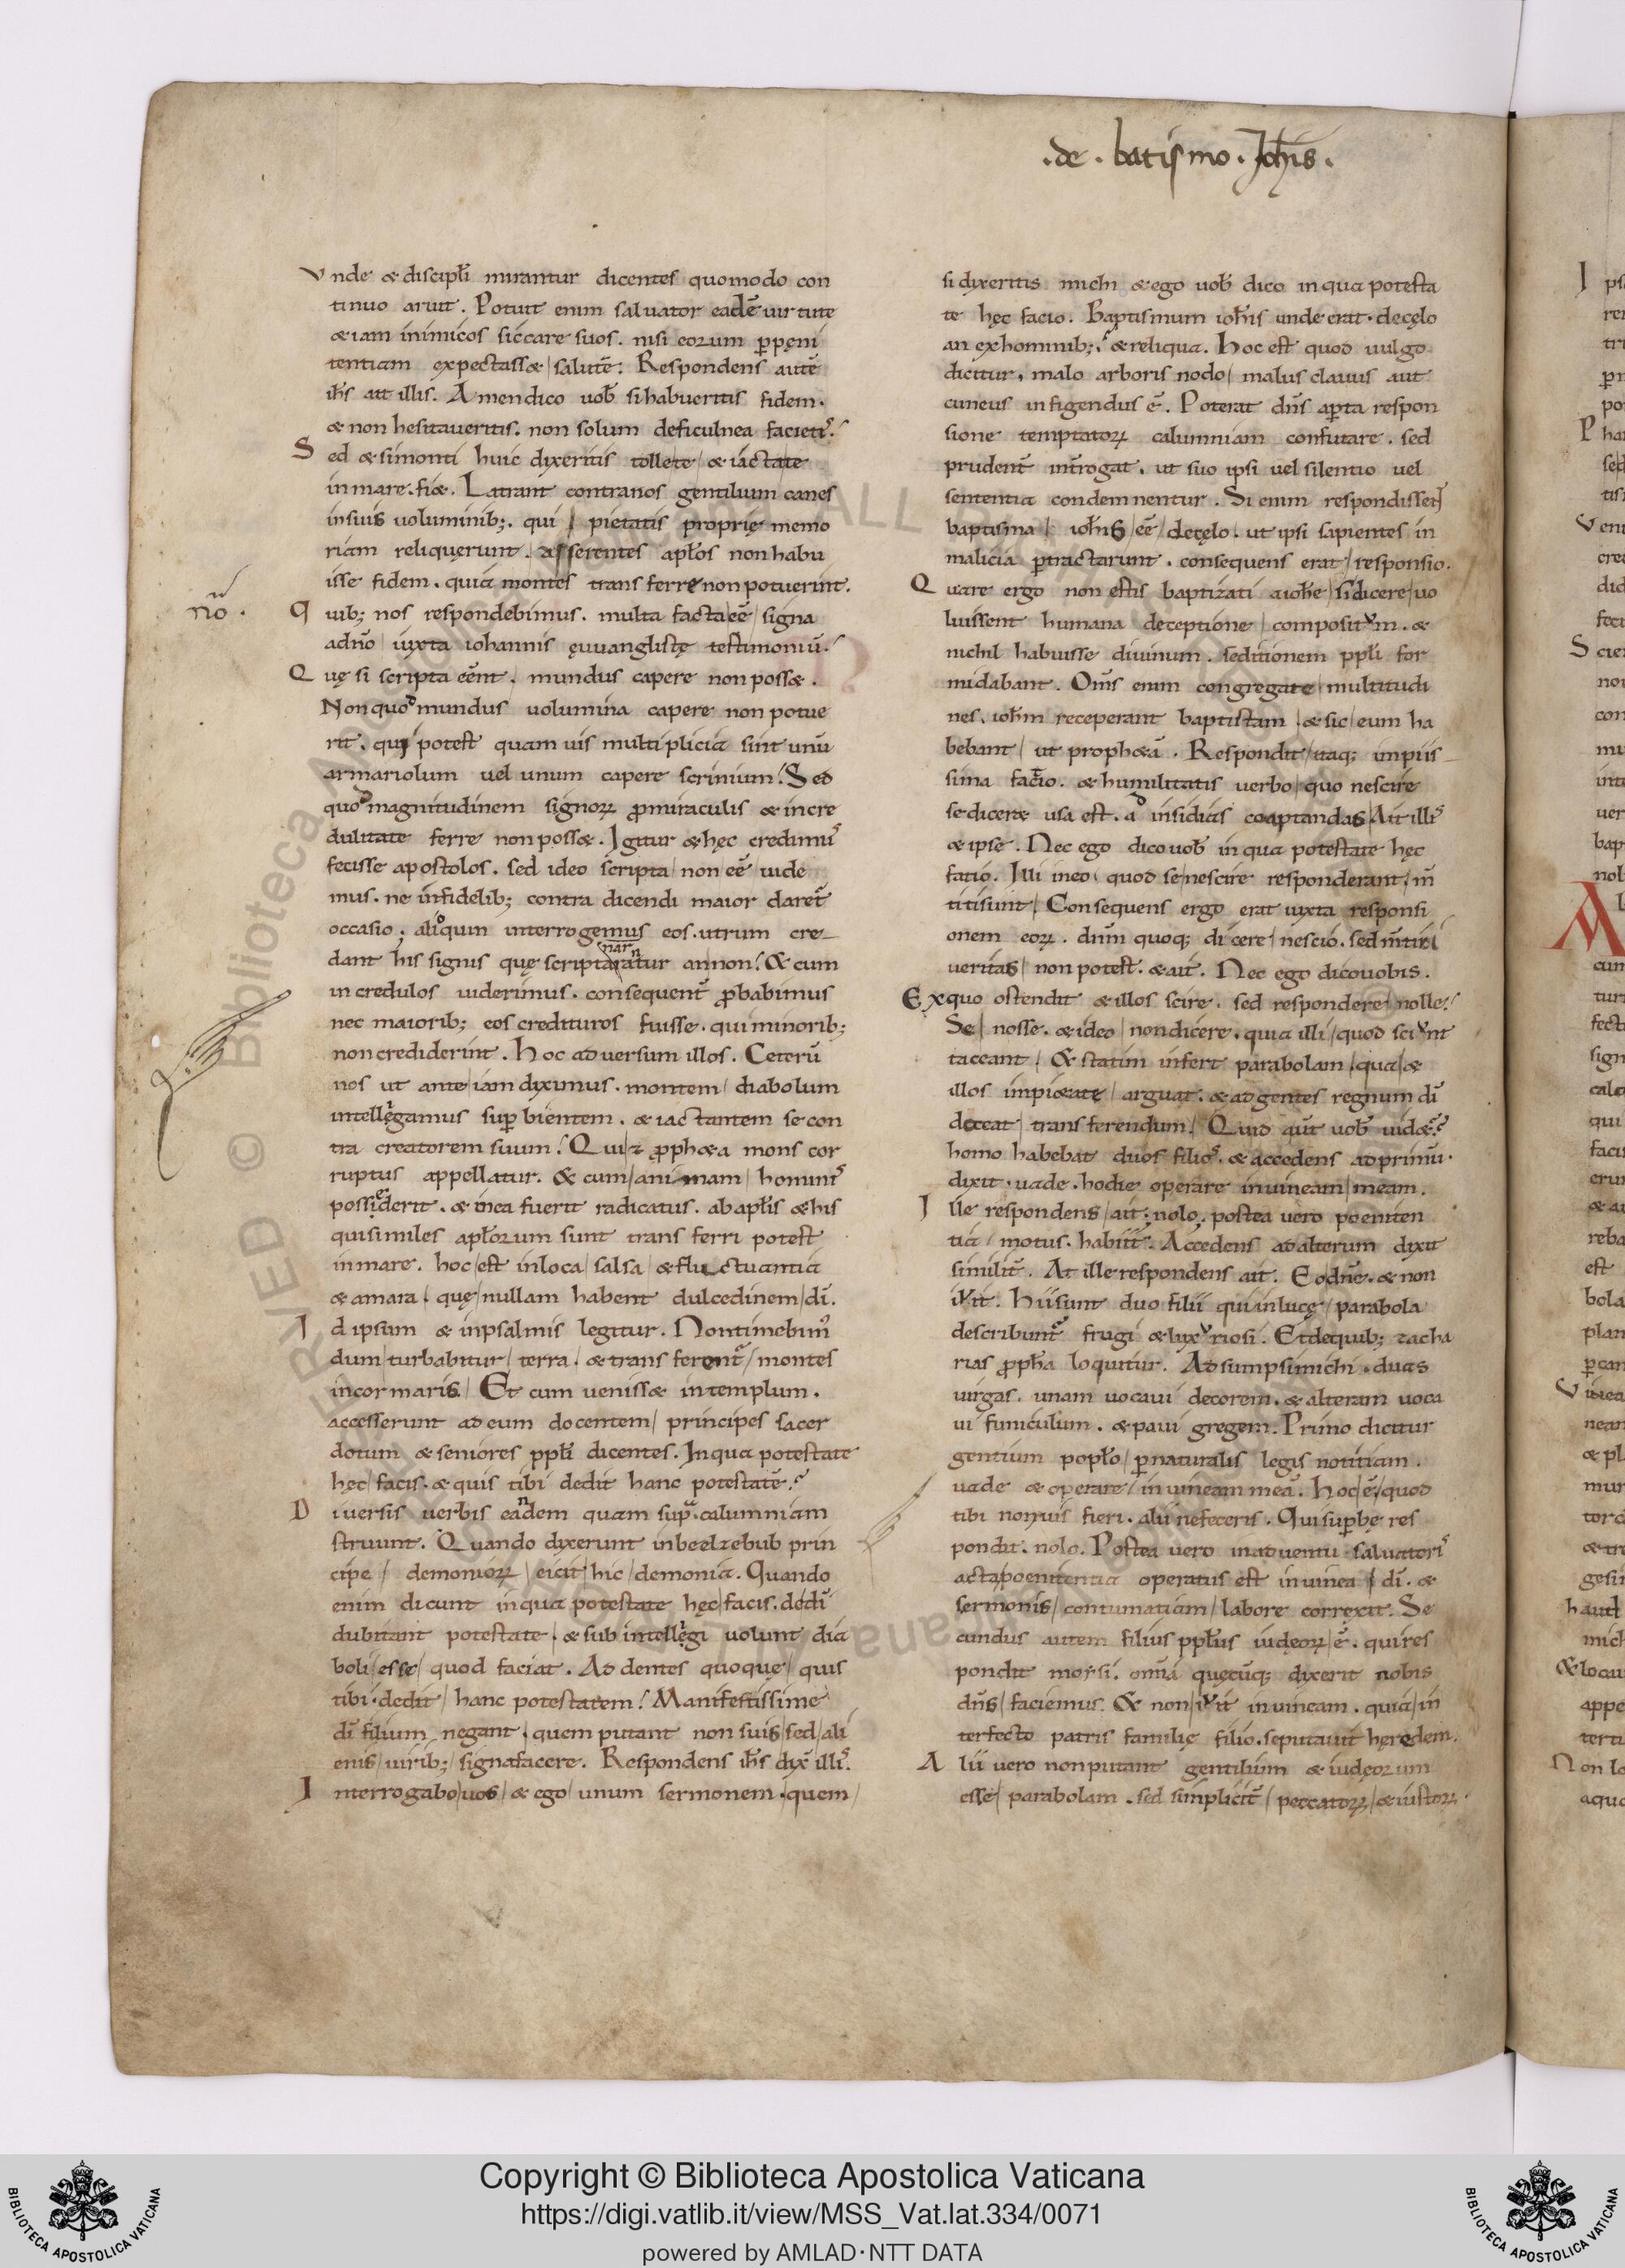 .de. batismo. Ioh̅is.
Vnde & discipłi mirantur dicentes quomodo con
tinuo aruit. Potuit enim saluator eadē uirtute
& iam inimicos siccare suos. nisi eorum p̱pęni
tentiam expectass& salutē: Respondens autē
ih̅s ait illis. Amen dico uob̅ si habueritis fidem.
& non hesitaueritis. non solum de ficulnea faciet᾿.
Sed & si monti huic dixeritis tollete & iactate
in mare. fi&. Latrant contra nos gentilium canes
in suis uoluminib; qui pietatis proprię memo
riam reliquerunt. asserentes apłos non habu
isse fidem. quia montes transferre non potuerint.
nō.
Quib; nos respondebimus. multa facta eē signa
a dn̅o iuxta iohannis ęuuanglistę testimoniū.
Quę si scripta eēnt. mundus capere non poss&.
Non quod mundus uolumina capere non potue
rit. qui potest quam uis multiplicia sint unū
armariolum uel unum capere scrinium. Sed
quod magnitudinem signoꝝ p̱ miraculis & incre
dulitate ferre non poss&. Igitur & hęc credim᾿
fecisse apostolos. sed ideo scripta non eē uide
mus. ne infidelib; contra dicendi maior daret᾿
occasio. alioquin interrogemus eos. utrum cre
dant his signis quę scripta narrantur an non. & cum
in credulos uiderimus. consequent̄ p̱babimus
nec maiorib; eos credituros fuisse. qui minorib;
non crediderint. Hoc aduersum illos. Ceterū
nos ut ante iam diximus. montem diabolum
intellęgamus sup̱bientem. & iactantem se con
tra creatorem suum. Qui a p̱ph&a mons cor
ruptus appellatur. & cum animam hominis
possederit. & in ea fuerit radicatus. ab apłis & his
qui similes apłorum sunt trans ferri potest
in mare. hoc est in loca salsa & fluctuantia
& amara. quę nullam habent dulcedinem di̅.
Id ipsum & in psalmis legitur. Non timebim᾿
dum turbabitur terra. & trans ferent᾿ montes
in cor maris. Et cum veniss& in templum.
accesserunt ad eum docentem principes sacer
dotum & seniores ppłi dicentes. In qua potestate
hęc facis. & quis tibi dedit hanc potestatē?
Diuersis uerbis eandem quam supͣ. calumniam
struunt. Quando dixerunt in beelzebub prin
cipe demonioꝝ eicit hic demonia. Quando
enim dicunt in qua potestate hęc facis. de di̅
dubitant potestate. & sub intellęgi uolunt dia
boli esse quod faciat. Addentes quoque quis
tibi dedit hanc potestatem. Manifestissime
di̅ filium negant. quem putant non suis sed ali
enis uirib; signa facere. Respondens ih̅s dix̄ illis.
Interrogabo uos & ego unum sermonem. quem
si dixeritis michi & ego uob̅ dico in qua potesta
te hęc facio. Baptismum ioh̅is unde erat. de cęlo
an ex hominib;. & reliqua. Hoc est quod uulgo
dicitur, malo arboris nodo malus clauus aut
cuneus infigendus ē. Poterat dn̅s ap̱ta respon
sione temptatoꝝ calumniam confutare. sed
prudent̄ int̄rogat. ut suo ipsi uel silentio uel
sententia condemnentur. Si enim respondissent
baptisma ioh̅is eē de cęlo. ut ipsi sapientes in
malicia p̱tractarunt. consequens erat responsio.
Quare ergo non estis baptizati a ioh̅e si dicere uo
luissent humana deceptione compositum. &
nichil habuisse diuinum. seditionem ppłi for
midabant. Om̅s enim congregate multitudi
nes. ioh̅m receperant baptistam & sic eum ha
bebant ut proph&ā. Respondit itaq; impiis
sima factio. & humilitatis uerbo quo nescire
se dicer& usa est. ad insidias coaptandas. Ait illis
& ipse. Nec ego dico uob̅ in qua potestate hęc
fatio. Illi in eo quod se nescire responderant. m̄
titi sunt. Consequens ergo erat iuxta responsi
onem eoꝝ. dnm̅ quoq; dicere nescio. sed m̄tiri
ueritas non potest. & ait. Nec ego dico uobis.
Ex quo ostendit & illos scire. sed respondere nolle.
Se nosse. & ideo non dicere. quia illi quod sciunt
taceant. & statim infert parabolam qua &
illos impi&ate arguat. & ad gentes regnum di̅
doceat trans ferendum. Quid aut̄ uob̅ uid&᾿?
homo habebat duos filios. & accedens ad primū.
dixit. uade. hodie operare in uineam meam.
Ille respondens ait. nolo. postea uero poeniten
tia motus. habiit. Accedens ad alterum dixit
similit̄. At ille respondens ait. Eo dn̅e. & non
iuit. Hii sunt duo filii qui in lucę parabola
describunt᾿ frugi & luxuriosi. Et de quib; zacha
rias p̱ph̅a loquitur. Adsumpsi michi duas
uirgas. unam uocaui decorem. & alteram uoca
ui funiculum. & paui gregem. Primo dicitur
gentium popło p̱ naturalis legis notitiam.
uade & operare in uineam meā. Hoc ē quod
tibi non uis fieri. alii ne feceris. Qui sup̱be res
pondit. nolo. Postea uero in aduentu saluatoris
acta poenitentia operatus est in uinea di̅. &
sermonis contumatiam labore correxit. Se
cundus autem filius ppłus iudeoꝝ ē. qui res
pondit moysi. omīa quęcūq; dixerit nobis
dn̅s faciemus. & non iuit in uineam. quia in
terfecto patris familię filio. se putauit hęredem.
Alii uero non putant gentilium & iudęorum
esse parabolam. sed simplicit̄ peccatoꝝ & iustoꝝ.
Copyright © Biblioteca Apostolica Vaticana
https://digi.vatlib.it/view/MSS_Vat.lat.334/0071
powered by AMLAD·NTT DATA
BIBLIOTECA APOSTOLICA VATICANA
BIBLIOTECA APOSTOLICA VATICANA